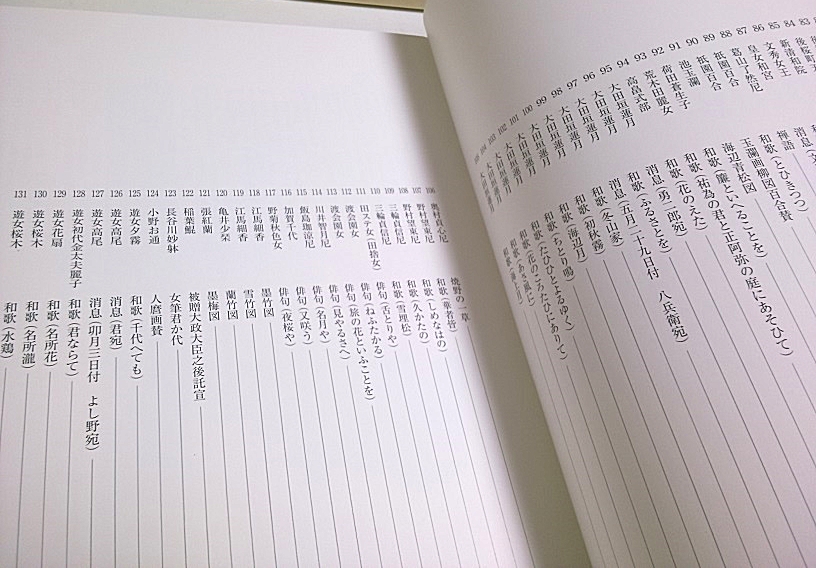 84 新清和院 消息
85 文秀女王
86 皇女和宮
87 葛山了然尼 禅語
88 祇園百合 和歌(とひきつつ)
89 祇園百合 玉瀾画柳図百合賛
90 池玉瀾 海辺青松図
91 荷田蒼生子 和歌(簾といへることを)
92 荒木田麗女 和歌(祐為の君と正阿弥の庭にあそひて)
93 高畠式部 和歌(花のえた)
94 大田垣蓮月 消息(勇二郎宛)
95 大田垣蓮月 和歌(ふるさとを)
96 大田垣蓮月 消息(五月二十九日付 八兵衛宛)
97 大田垣蓮月 消息(冬山家)
98 大田垣蓮月 和歌(初秋霧)
99 大田垣蓮月 和歌(海辺月)
100 大田垣蓮月 和歌(ちとり鳴)
101 大田垣蓮月 和歌(たひひとよるゆく)
102 大田垣蓮月 和歌(花のころたひにありて)
103 大田垣蓮月 和歌(あら風に)
106 奥村貞心尼 焼野の一草
107 野村望東尼 和歌(華者皆)
108 野村望東尼 和歌(しめなはの)
109 三輪貞信尼 和歌(久かたの)
110 三輪貞信尼 和歌(雪埋松)
111 田ステ女(田捨女) 俳句(舌とりや)
112 渡会園女 俳句(ねふたかる)
113 渡会園女 俳句(旅の花といふことを)
114 川井智月尼 俳句(見やるさへ)
115 飯島珈涼尼 俳句(名月や)
116 加賀千代 俳句(又咲う)
117 野菊秋色女 俳句(夜桜や)
118 江馬細香 墨竹図
119 江馬細香 雪竹図
120 亀井少栞 蘭竹図
121 張紅蘭 墨梅図
122 稲葉鯤 被贈大政大臣之後託宣
123 長谷川妙躰 女筆君か代
124 小野お通 人麿画賛
125 遊女夕霧 和歌(千代へても)
126 遊女高尾 消息(君宛)
127 遊女高尾 消息(卯月三日付 よし野宛)
128 遊女初代金太夫麗子 和歌(君ならて)
129 遊女花扇 和歌(名所花)
130 遊女桜木 和歌(名所瀧)
131 遊女桜木 和歌(水鶏)